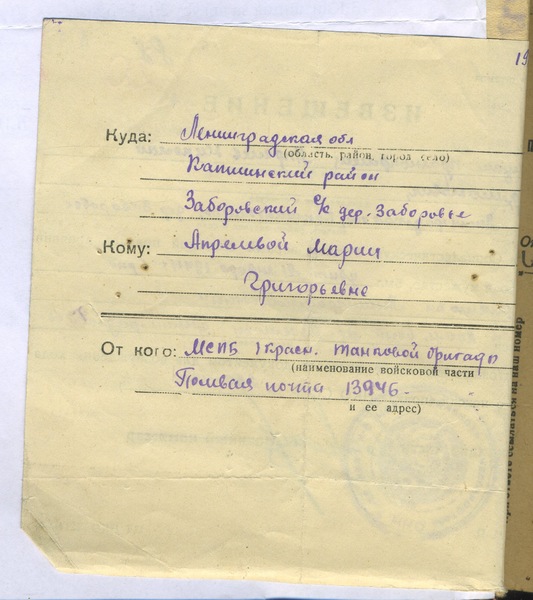 19
Куда: Ленинградская обл
(область, район, город, село)
Капшинский район
Заборовский с/с дер. Заборовье
Кому: Апрелевой Марии
Григорьевне
От кого: МСПБ 1 Красн. танковой бригады
(наименование войсковой части
Полевая почта 13946.
и ее адрес)
При ответе ссылаться на наш номер
ИЗВЕЩЕНИЕ